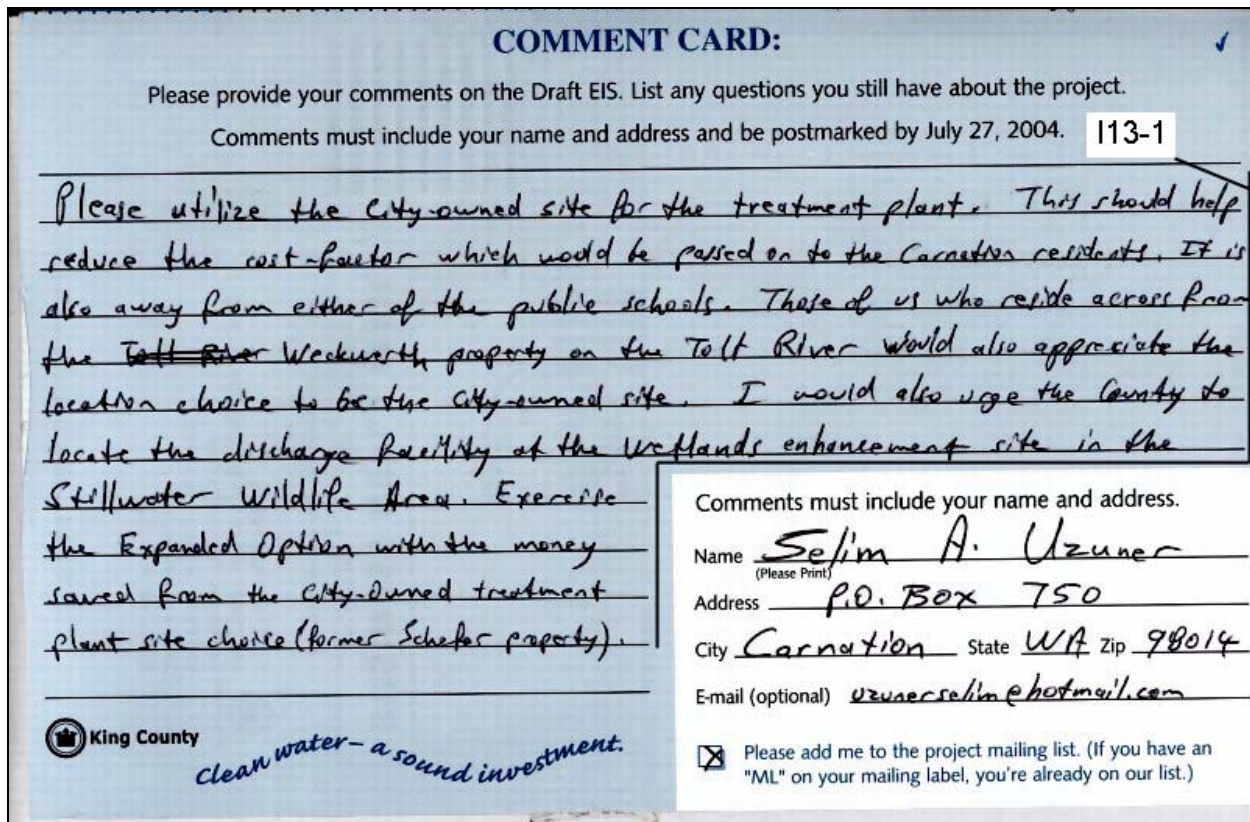 COMMENT CARD:
Please provide your comments on the Draft EIS. List any questions you still have about the project.
Comments must include your name and address and be postmarked by July 27, 2004.
I13-1
Please utilize the City-owned site for the treatment plant. This should help
reduce the cost-factor which would be passed on to the Carnation residents. It is
also away from either of the public schools. Those of us who reside across from
the Tolt River Weckwerth property on the Tolt River would also appreciate the
location choice to be the City-owned site. I would also urge the County to
locate the discharge facility at the Wetlands enhancement site in the
Stillwater Wildlife Area. Exercise
the Expanded Option with the money
saved from the City-Owned treatment
plant site choice (former Schefer property).
Comments must include your name and address.
Name Selim A. Uzuner
(Please Print)
Address P.O. Box 750
City Carnation State WA Zip 98014
E-mail (optional) uzunerselim@hotmail.com
Please add me to the project mailing list. (If you have an
"ML" on your mailing label, you're already on our list.)
King County
Clean water – a sound investment.